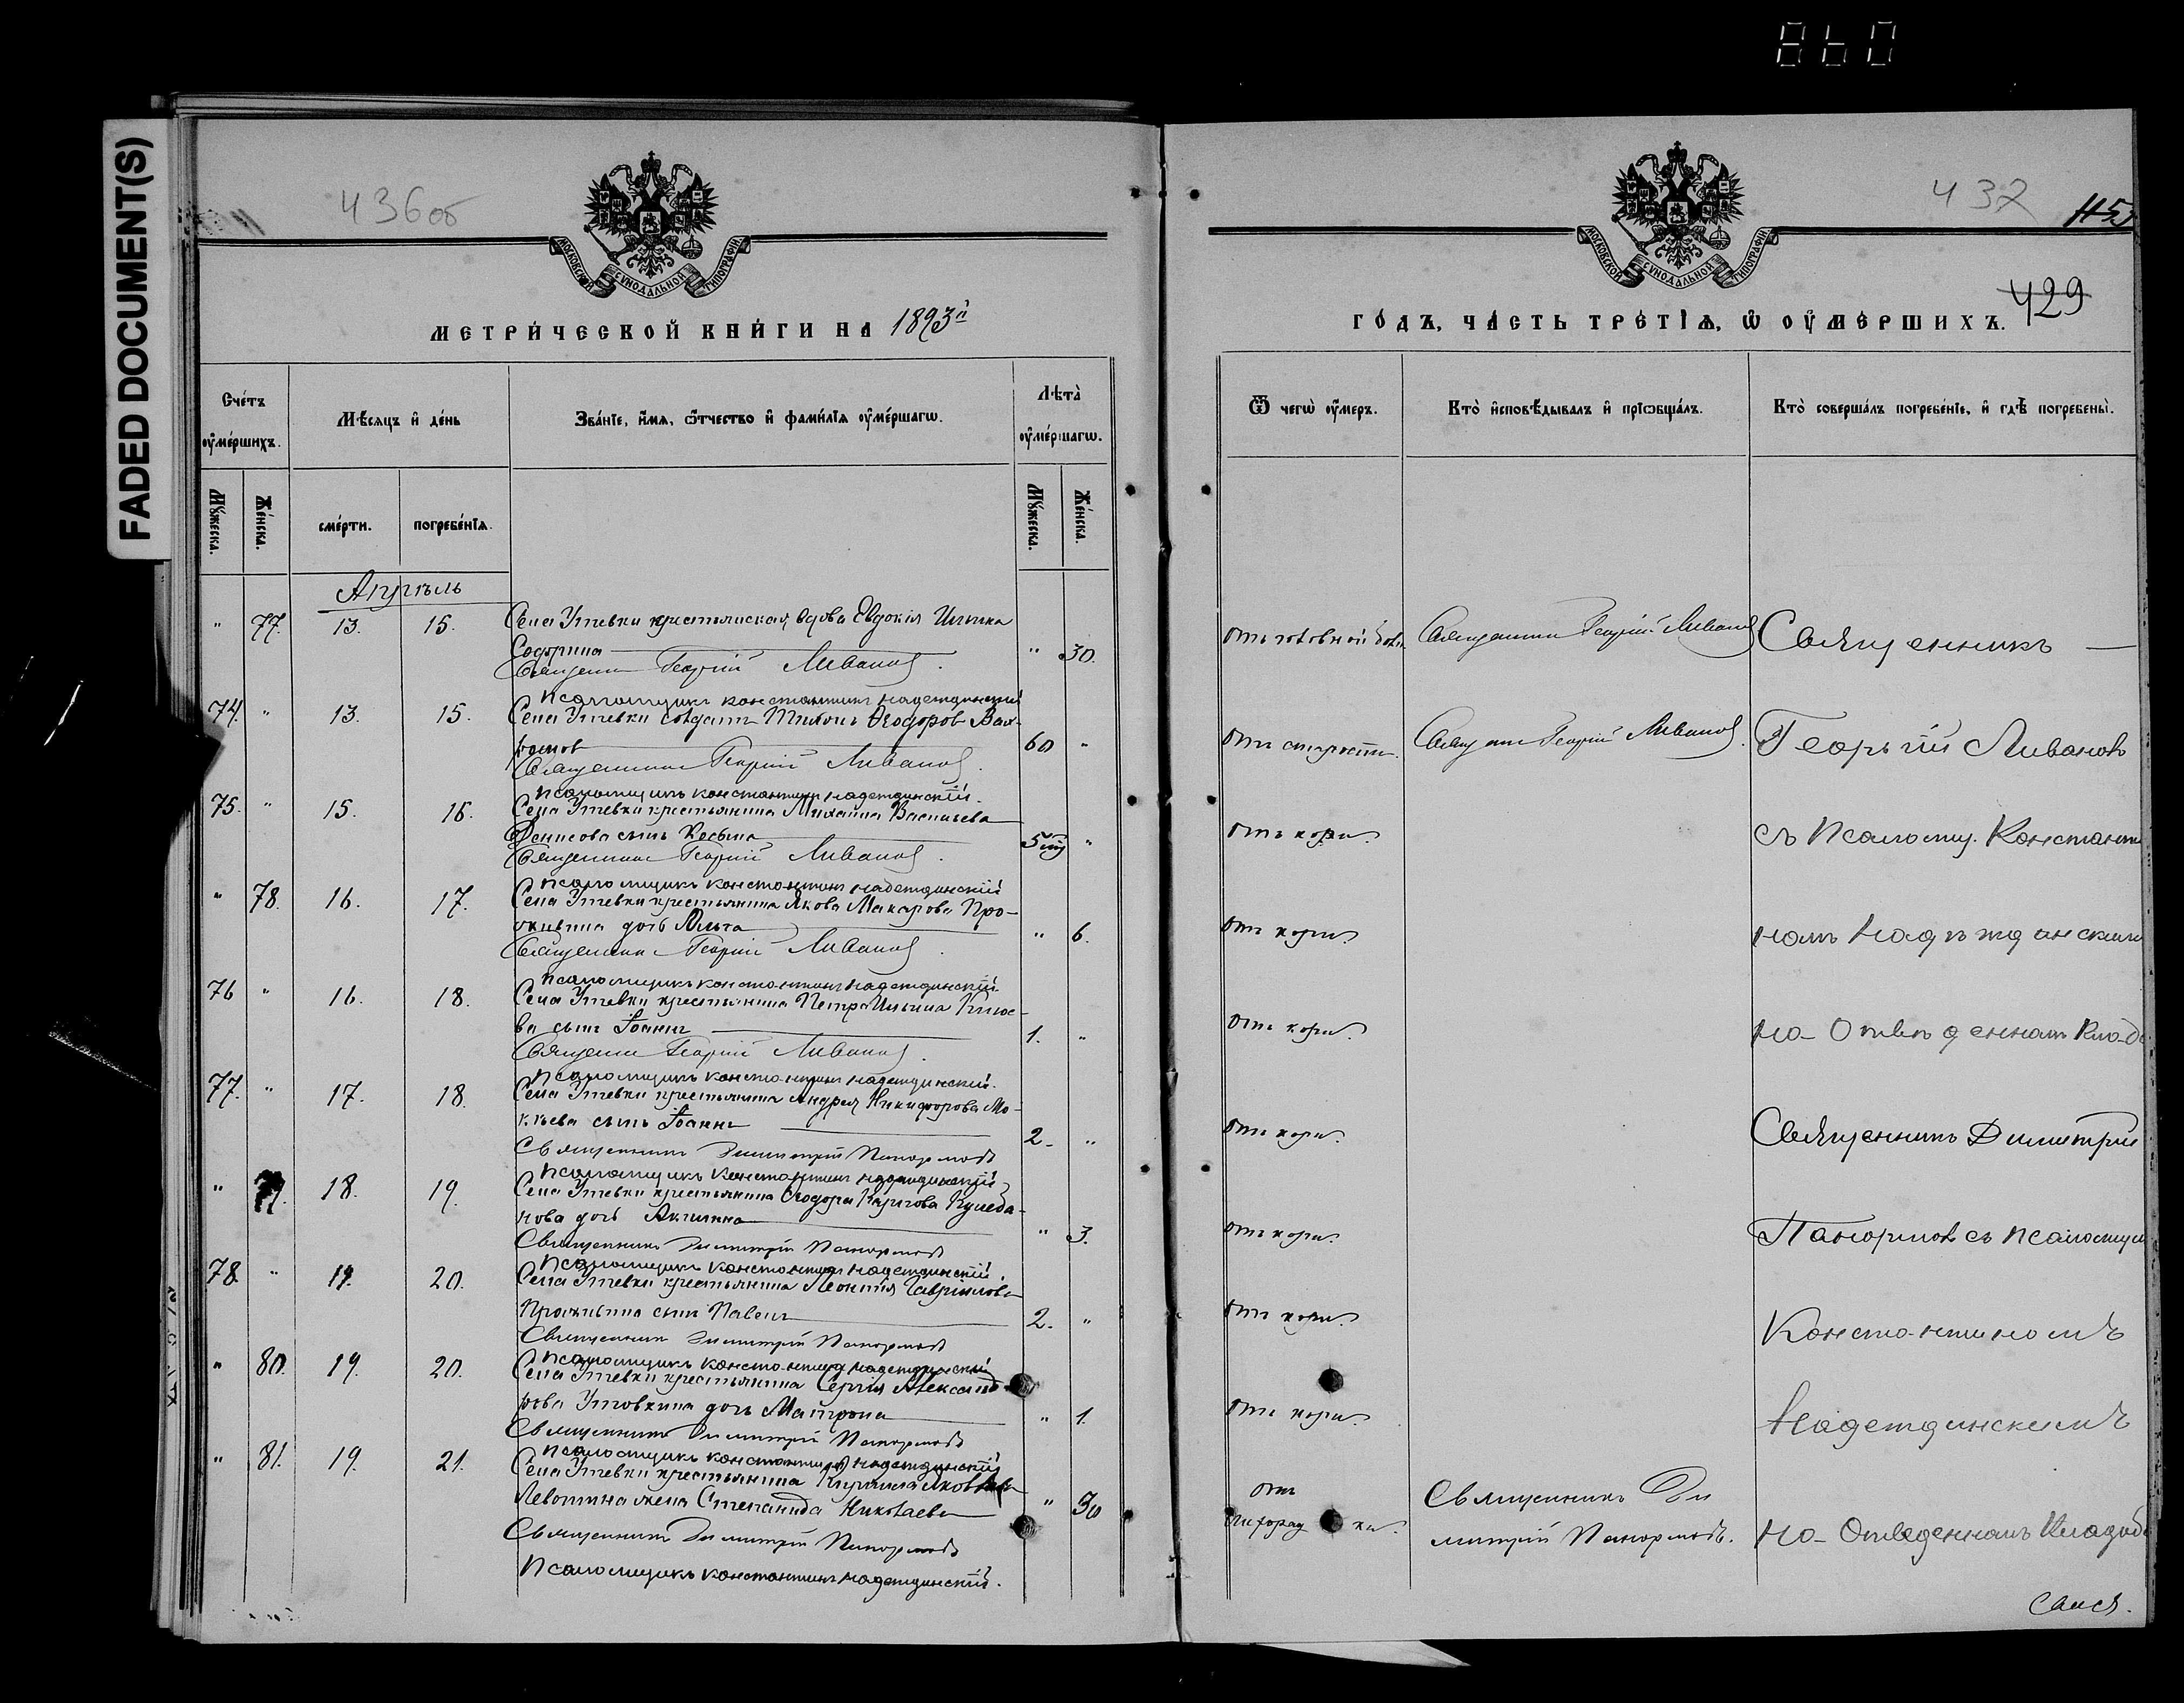 860
FADED DOCUMENT(S)
436об
МОСКОВСКОЙ СУНОДАЛЬНОЙ ТИПОГРАФІИ
МЕТРИ́ЧЕСКОЙ КНИ́ГИ НА 1893й
Сче́тъ оу҆ме́ршихъ.
Мѣ́сяцъ и҆ де́нь
Зва́нїе, и҆́мѧ, ѻ҆́тчество и҆ фами́лїѧ оу҆ме́ршагѡ.
Лѣта̀ оу҆ме́ршагѡ.
Мꙋ́жеска.
Же́нска.
сме́рти.
погребе́нїѧ.
Мꙋ́жеска.
Же́нска.
Апрѣль
" 77. 13. 15. Села Утевки крестьянская вдова Евдокія Ильина
" 30.
Священник Георгій Ливанов.
Псаломщикъ Константинъ Надеждинскій
74. " 13. 15. Села Утевки солдатъ Тихонъ Ѳеодоров Вах-
60 "
Священник Георгій Ливанов.
Псаломщикъ Константинъ Надеждинскій.
75. " 15. 16. Села Утевки крестьянина Михаила Васильева
Денисова сынъ 5 "
Священник Георгій Ливанов.
Псаломщикъ Константинъ Надеждинскій
" 78. 16. 17. Села Утевки крестьянина Якова Макарова Про-
живина дочь " 6.
Священник Георгій Ливанов.
Псаломщикъ Константинъ Надеждинскій.
76 " 16. 18. Села Утевки крестьянина Петра Ильина
ва сынъ Іоаннъ 1. "
Священник Георгій Ливанов.
Псаломщикъ Константинъ Надеждинскій.
77. " 17. 18. Села Утевки крестьянина Андрея Никифорова Мо-
кѣева сынъ Іоаннъ 2. "
Священникъ Димитрій Панормовъ
Псаломщикъ Константинъ Надеждинскій
" 79. 18. 19. Села Утевки крестьянина Ѳеодора Карпова Кулеба-
нова дочь Акилина " 3.
Священникъ Димитрій Панормовъ
Псаломщикъ Константинъ Надеждинскій.
78 " 19. 20. Села Утевки крестьянина Леонтія Гавріилова
Проживина сынъ Павелъ 2. "
Священникъ Димитрій Панормовъ
Псаломщикъ Константинъ Надеждинскій
" 80. 19. 20. Села Утевки крестьянина Сергія Александ-
рова дочь Матрона " 1.
Священникъ Димитрій Панормовъ
Псаломщикъ Константинъ Надеждинскій
" 81. 19. 21. Села Утевки крестьянина Кирилла Яковлева
жена Степанида Николаева " 30
Священникъ Димитрій Панормовъ
Псаломщикъ Константинъ Надеждинскій.
437
429
МОСКОВСКОЙ СУНОДАЛЬНОЙ ТИПОГРАФІИ
ГО́ДЪ, ЧА́СТЬ ТРЕ́ТЇѦ, Ѡ҆ ОУ҆МЕ́РШИХЪ.
Ѿ чегѡ̀ оу҆́меръ.
Кто̀ и҆сповѣ́дывалъ и҆ прїѡбща́лъ.
Кто̀ соверша́лъ погребе́нїе, и҆ гдѣ̀ погребены̀.
отъ головной боли
Священник Георгій Ливанов
Священникъ
отъ старости.
Священ Георгій Ливанов.
Георгій Ливановъ
отъ кори.
съ Псаломщ. Константи
отъ кори.
номъ Надеждинскимъ
отъ кори.
на Отведенномъ Кладб
отъ кори.
Священникъ Димитрій
отъ кори.
Панормовъ съ Псаломщи
отъ кори.
Константиномъ
отъ кори.
Надеждинскимъ
отъ
лихорадки.
Священникъ Ди
митрій Панормовъ.
на Отведенномъ Кладб